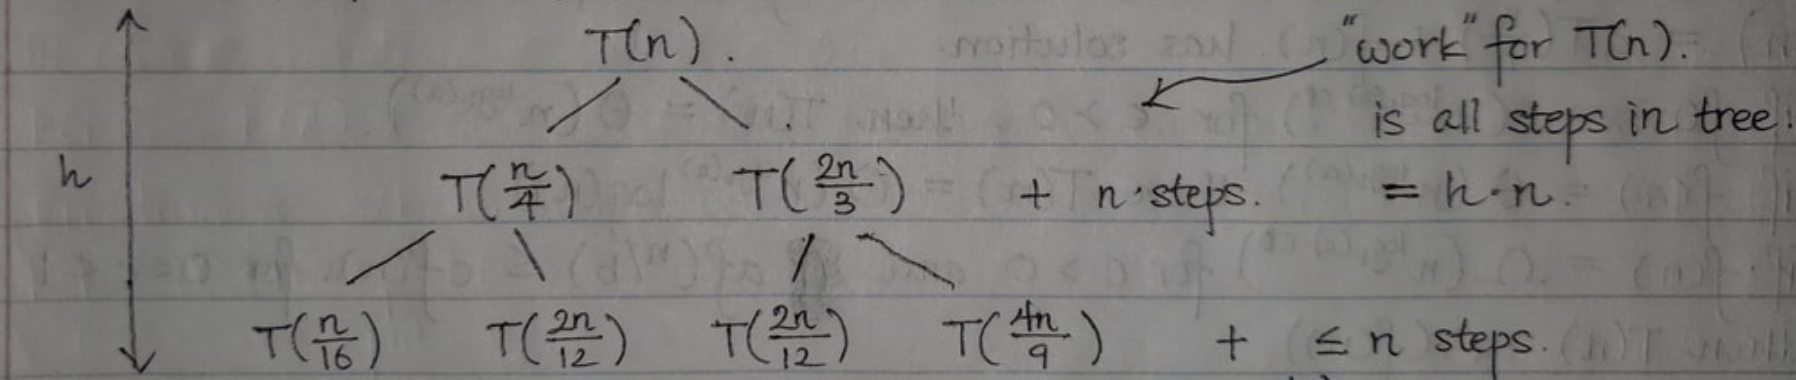 T(n). "work" for T(n).
is all steps in tree:
h T(n/4) T(2n/3) + n·steps. = h·n.
T(n/16) T(2n/12) T(2n/12) T(4n/9) + ≤ n steps.